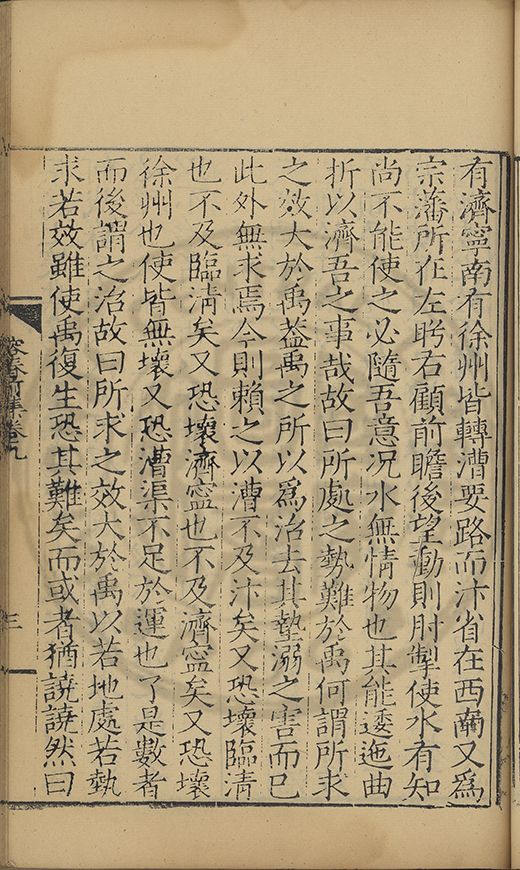 有濟寧南有徐州皆轉漕要路而汴省在西南又為
宗藩所在左盻右顧前瞻後望動則肘掣使水有知
尚不能使之必隨吾意况水無情物也其能逶迤曲
折以濟吾之事哉故曰所處之勢難於禹何謂所求
之效大於禹葢禹之所以爲治去其墊溺之害而已
此外無求焉今則賴之以漕不及汴矣又恐壞臨清
也不及臨清矣又恐壞濟寧也不及濟寧矣又恐壞
徐州也使皆無壞又恐漕渠不足於運也了是數者
而後謂之治故曰所求之效大於禹以若地處若埶
求若效雖使禹復生恐其難矣而或者猶譊譊然曰
卷九
三